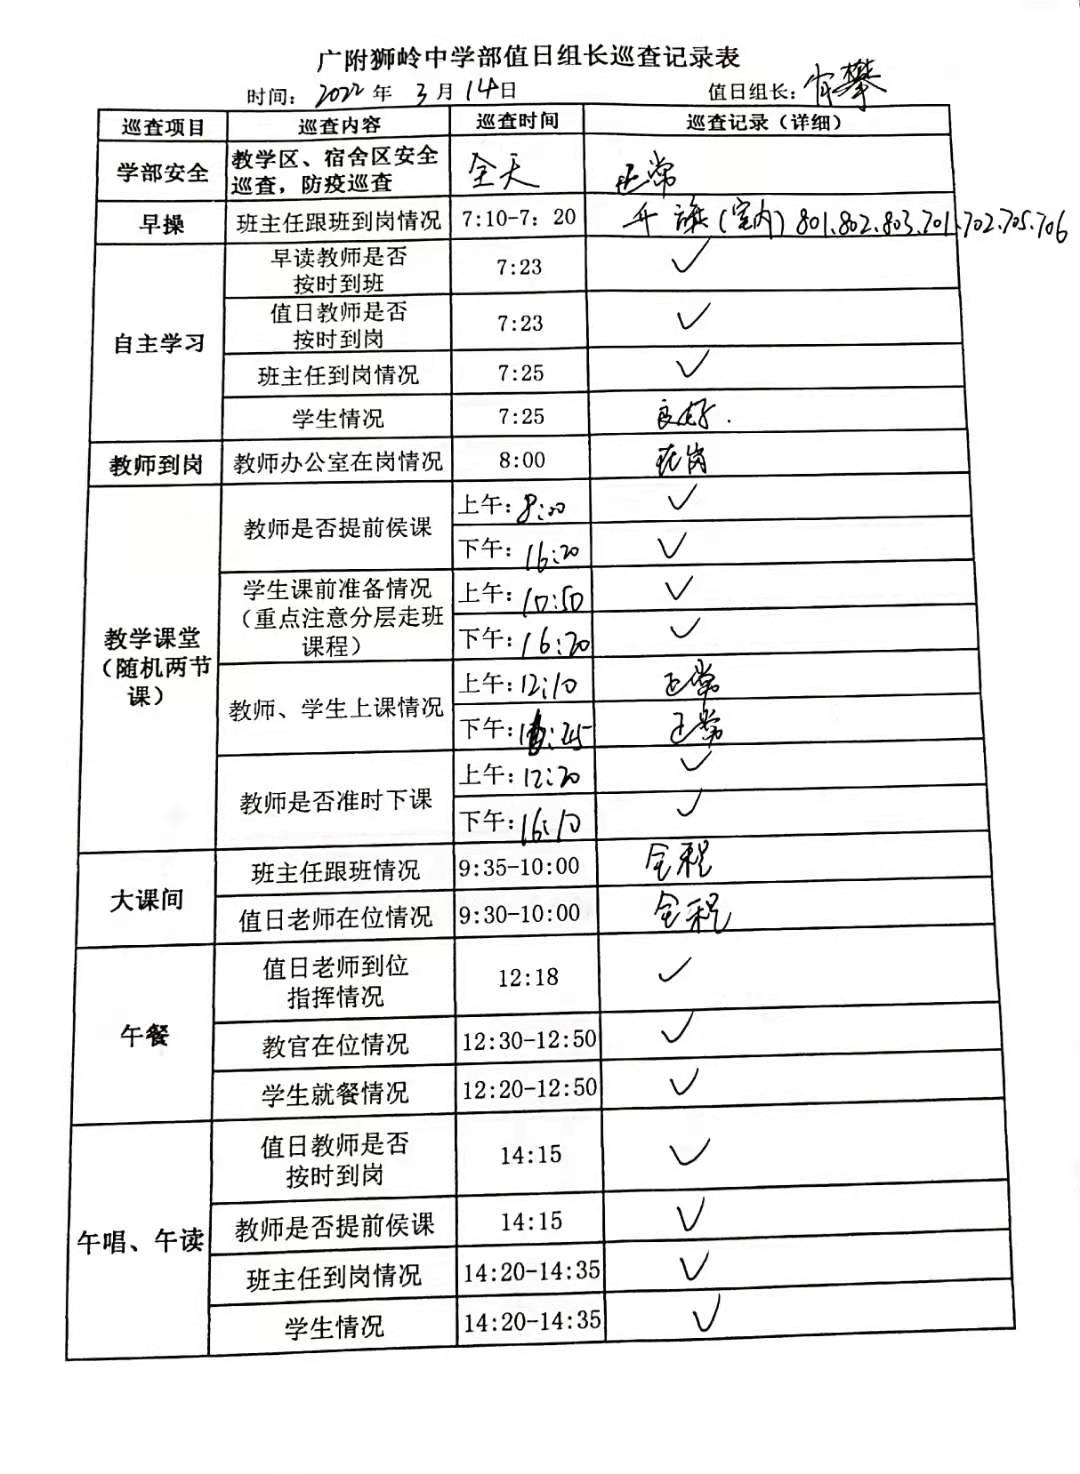 广附狮岭中学部值日组长巡查记录表
时间：2022年 3月14日 值日组长：
巡查项目 巡查内容 巡查时间 巡查记录（详细）
学部安全 教学区、宿舍区安全
巡查，防疫巡查 全天 正常
早操 班主任跟班到岗情况 7:10-7：20 升旗(室内)801.802.803.701.702.705.706
自主学习
早读教师是否
按时到班 7:23 ✓
值日教师是否
按时到岗 7:23 ✓
班主任到岗情况 7:25 ✓
学生情况 7:25 良好.
教师到岗 教师办公室在岗情况 8:00 在岗
教学课堂
（随机两节
课）
教师是否提前侯课
上午：8:00 ✓
下午：16:20 ✓
学生课前准备情况
（重点注意分层走班
课程）
上午：10:50 ✓
下午：16:20 ✓
教师、学生上课情况
上午：12:10 正常
下午： 正常
教师是否准时下课
上午：12:20 ✓
下午：16:10 ✓
大课间
班主任跟班情况 9:35-10:00 全程
值日老师在位情况 9:30-10:00 全程
午餐
值日老师到位
指挥情况 12:18 ✓
教官在位情况 12:30-12:50 ✓
学生就餐情况 12:20-12:50 ✓
午唱、午读
值日教师是否
按时到岗 14:15 ✓
教师是否提前侯课 14:15 ✓
班主任到岗情况 14:20-14:35 ✓
学生情况 14:20-14:35 ✓